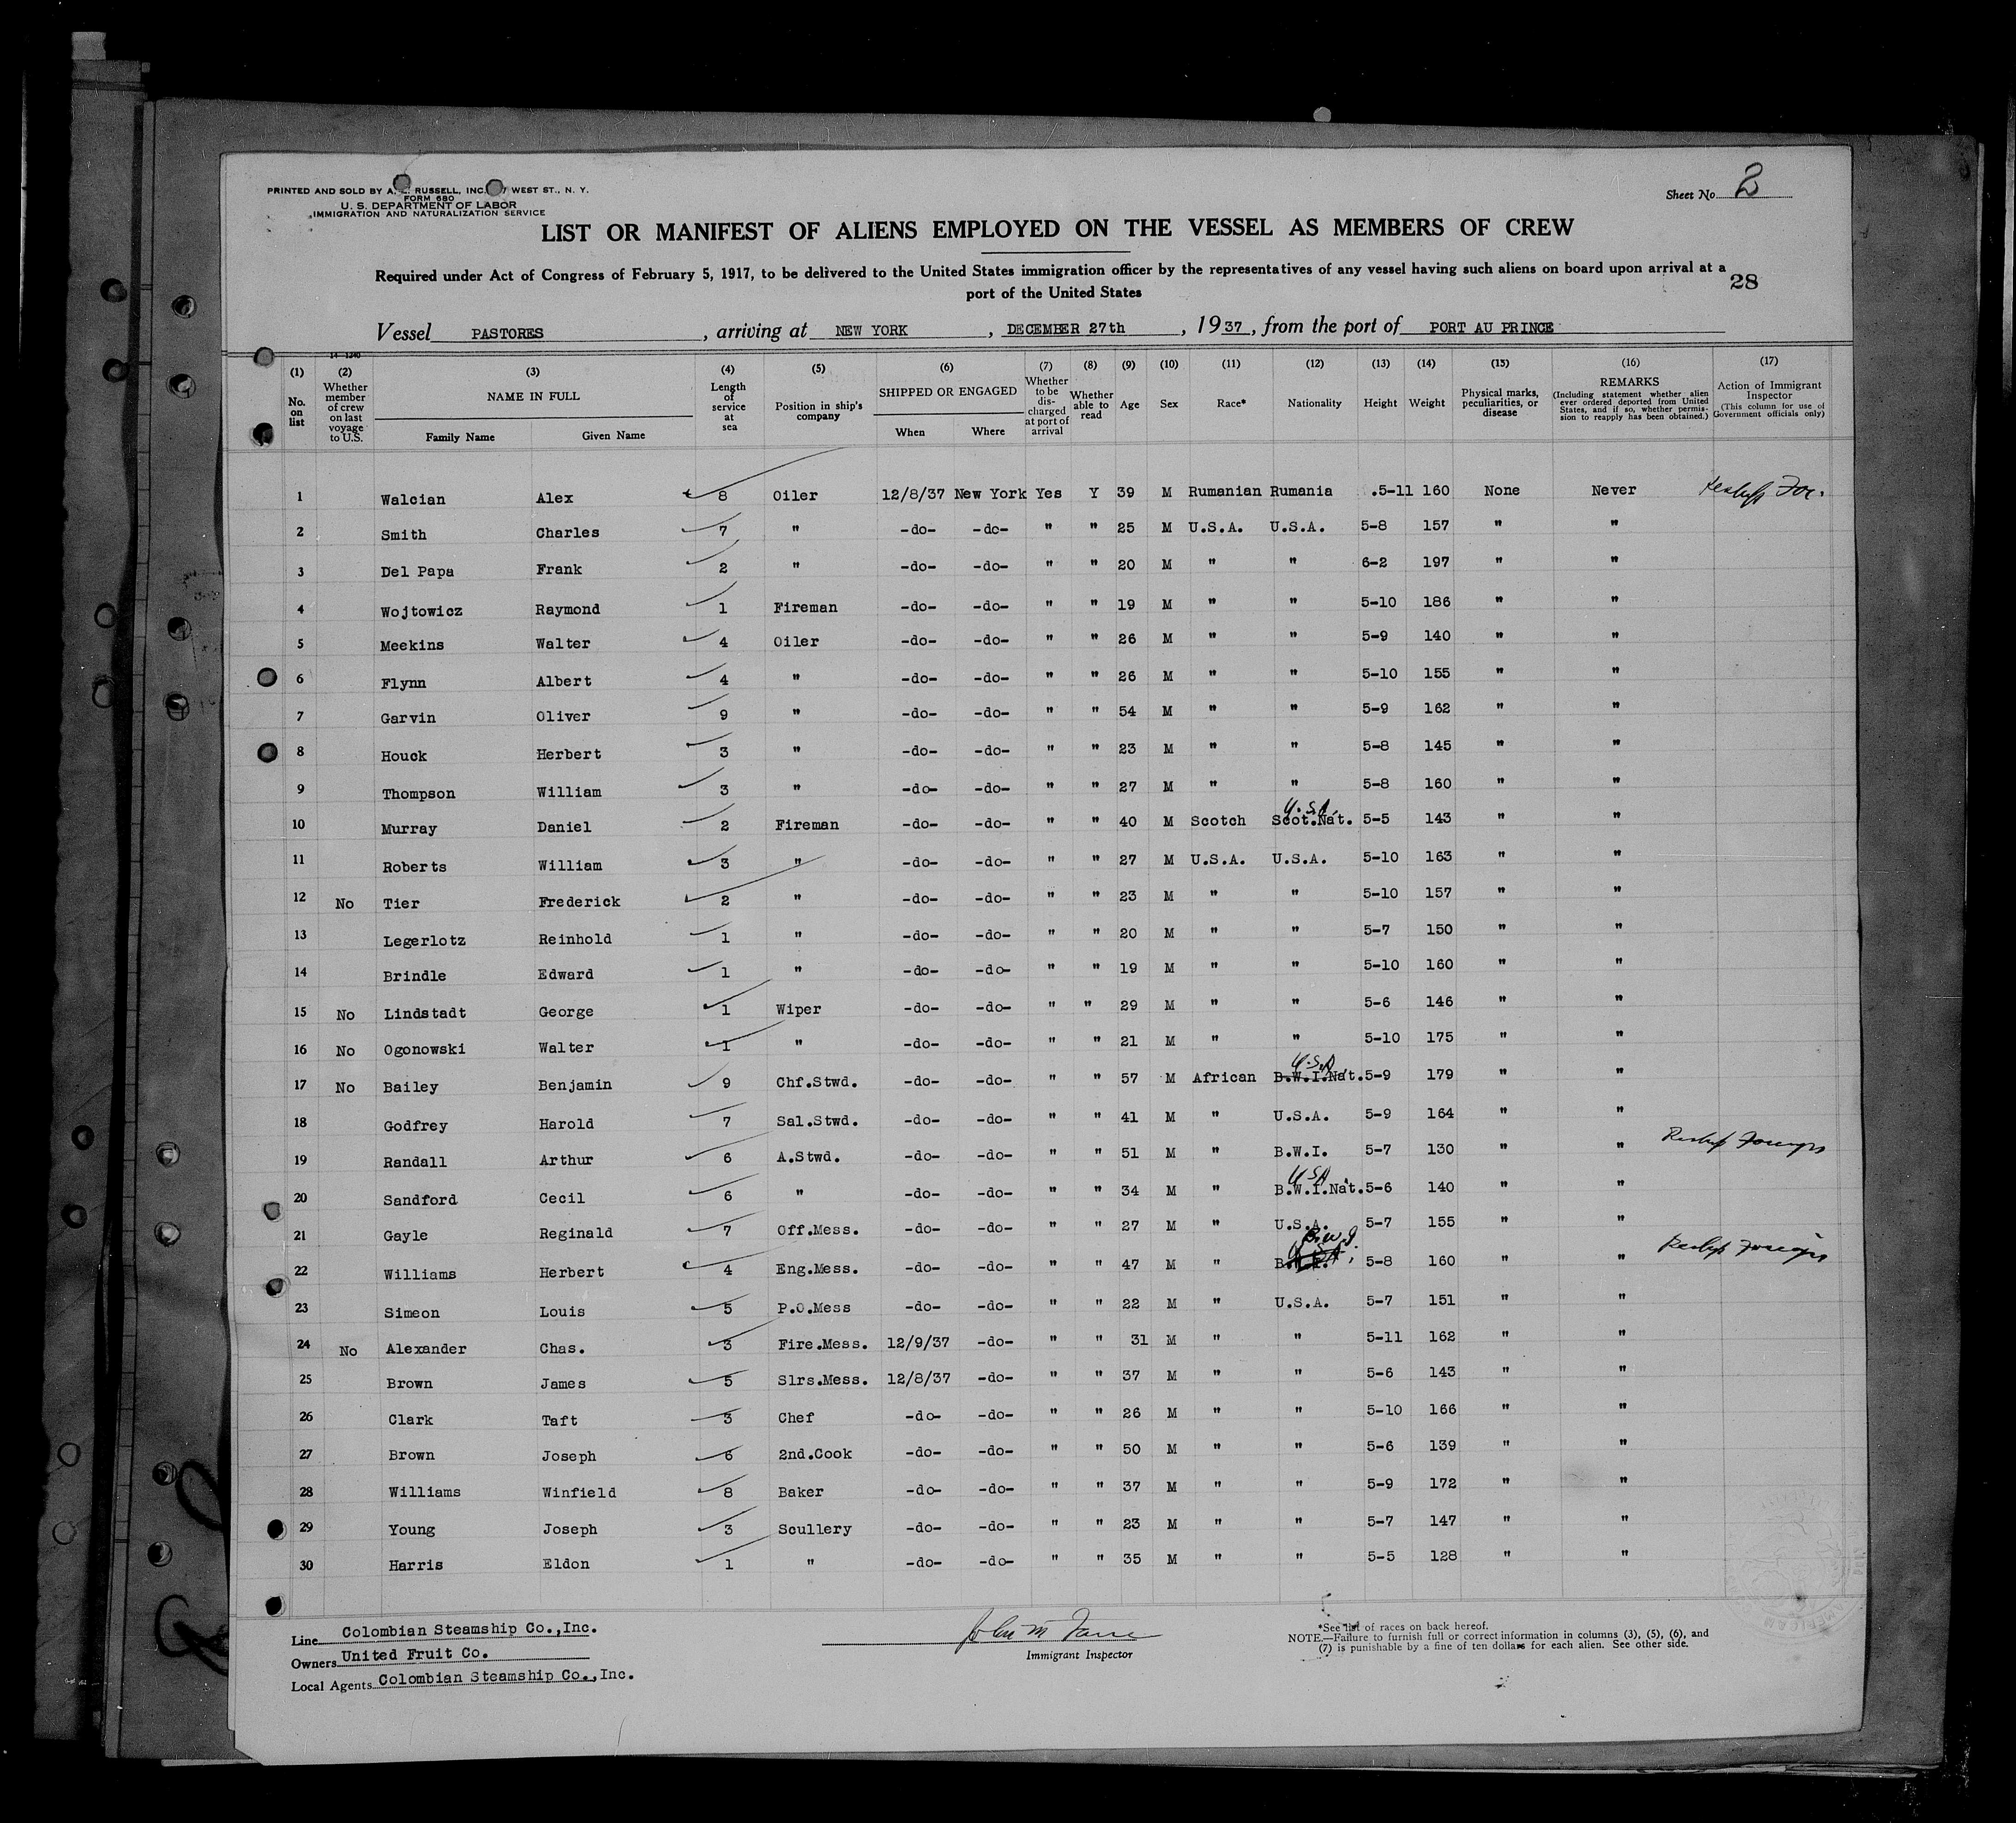 PRINTED AND SOLD BY A. L. RUSSELL, INC. WEST ST., N. Y.
FORM 680
U. S. DEPARTMENT OF LABOR
IMMIGRATION AND NATURALIZATION SERVICE
Sheet No. 2
LIST OR MANIFEST OF ALIENS EMPLOYED ON THE VESSEL AS MEMBERS OF CREW
Required under Act of Congress of February 5, 1917, to be delivered to the United States immigration officer by the representatives of any vessel having such aliens on board upon arrival at a
port of the United States
28
Vessel PASTORES, arriving at NEW YORK, DECEMBER 27th, 1937, from the port of PORT AU PRINCE
14—1240
(1) No. on list
(2) Whether member of crew on last voyage to U.S.
(3) NAME IN FULL Family Name Given Name
(4) Length of service at sea
(5) Position in ship's company
(6) SHIPPED OR ENGAGED When Where
(7) Whether to be discharged at port of arrival
(8) Whether able to read
(9) Age
(10) Sex
(11) Race*
(12) Nationality
(13) Height
(14) Weight
(15) Physical marks, peculiarities, or disease
(16) REMARKS (Including statement whether alien ever ordered deported from United States, and if so, whether permission to reapply has been obtained.)
(17) Action of Immigrant Inspector (This column for use of Government officials only)
1 Walcian Alex 8 Oiler 12/8/37 New York Yes Y 39 M Rumanian Rumania .5-11 160 None Never
2 Smith Charles 7 " -do- -do- " " 25 M U.S.A. U.S.A. 5-8 157 " "
3 Del Papa Frank 2 " -do- -do- " " 20 M " " 6-2 197 " "
4 Wojtowicz Raymond 1 Fireman -do- -do- " " 19 M " " 5-10 186 " "
5 Meekins Walter 4 Oiler -do- -do- " " 26 M " " 5-9 140 " "
6 Flynn Albert 4 " -do- -do- " " 26 M " " 5-10 155 " "
7 Garvin Oliver 9 " -do- -do- " " 54 M " " 5-9 162 " "
8 Houck Herbert 3 " -do- -do- " " 23 M " " 5-8 145 " "
9 Thompson William 3 " -do- -do- " " 27 M " " 5-8 160 " "
10 Murray Daniel 2 Fireman -do- -do- " " 40 M Scotch U.S.A. Scot.Nat. 5-5 143 " "
11 Roberts William 3 " -do- -do- " " 27 M U.S.A. U.S.A. 5-10 163 " "
12 No Tier Frederick 2 " -do- -do- " " 23 M " " 5-10 157 " "
13 Legerlotz Reinhold 1 " -do- -do- " " 20 M " " 5-7 150 " "
14 Brindle Edward 1 " -do- -do- " " 19 M " " 5-10 160 " "
15 No Lindstadt George 1 Wiper -do- -do- " " 29 M " " 5-6 146 " "
16 No Ogonowski Walter 1 " -do- -do- " " 21 M " " 5-10 175 " "
17 No Bailey Benjamin 9 Chf.Stwd. -do- -do- " " 57 M African U.S.A. B.W.I.Nat. 5-9 179 " "
18 Godfrey Harold 7 Sal.Stwd. -do- -do- " " 41 M " U.S.A. 5-9 164 " "
19 Randall Arthur 6 A.Stwd. -do- -do- " " 51 M " B.W.I. 5-7 130 " "
20 Sandford Cecil 6 " -do- -do- " " 34 M " USA B.W.I.Nat. 5-6 140 " "
21 Gayle Reginald 7 Off.Mess. -do- -do- " " 27 M " U.S.A. 5-7 155 " "
22 Williams Herbert 4 Eng.Mess. -do- -do- " " 47 M " B.W.I. 5-8 160 " "
23 Simeon Louis 5 P.O.Mess -do- -do- " " 22 M " U.S.A. 5-7 151 " "
24 No Alexander Chas. 3 Fire.Mess. 12/9/37 -do- " " 31 M " " 5-11 162 " "
25 Brown James 5 Slrs.Mess. 12/8/37 -do- " " 37 M " " 5-6 143 " "
26 Clark Taft 3 Chef -do- -do- " " 26 M " " 5-10 166 " "
27 Brown Joseph 6 2nd.Cook -do- -do- " " 50 M " " 5-6 139 " "
28 Williams Winfield 8 Baker -do- -do- " " 37 M " " 5-9 172 " "
29 Young Joseph 3 Scullery -do- -do- " " 23 M " " 5-7 147 " "
30 Harris Eldon 1 " -do- -do- " " 35 M " " 5-5 128 " "
Line Colombian Steamship Co.,Inc.
Owners United Fruit Co.
Local Agents Colombian Steamship Co.,Inc.
Immigrant Inspector
*See list of races on back hereof.
NOTE.—Failure to furnish full or correct information in columns (3), (5), (6), and
(7) is punishable by a fine of ten dollars for each alien. See other side.